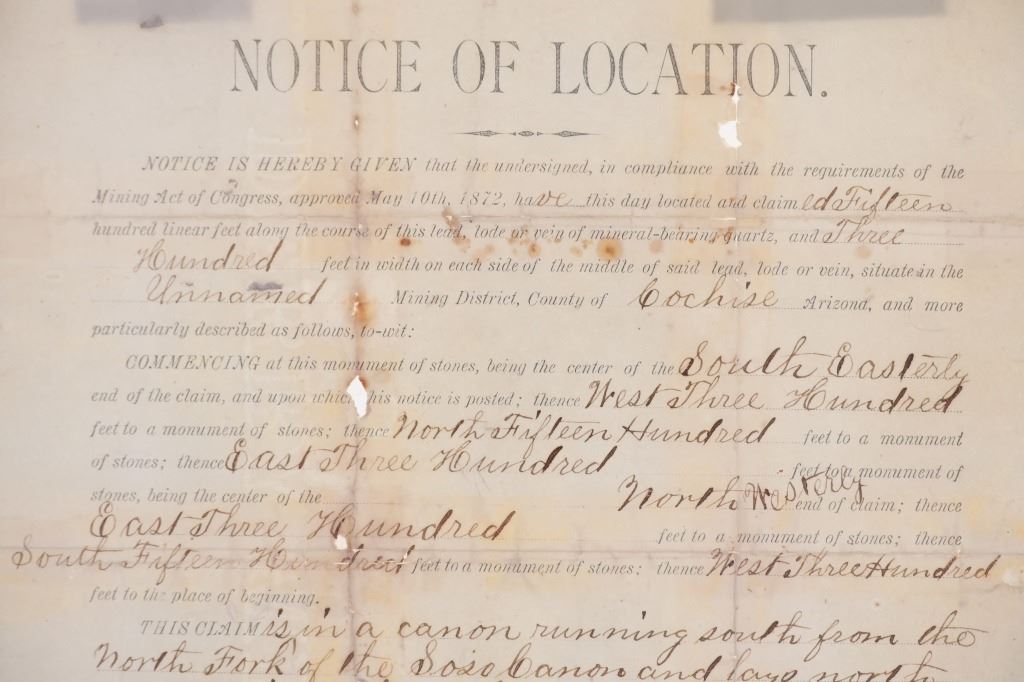 NOTICE OF LOCATION.
NOTICE IS HEREBY GIVEN that the undersigned, in compliance with the requirements of the
Mining Act of Congress, approved May 10th, 1872, have this day located and claimed Fifteen
hundred linear feet along the course of this lead, lode or vein of mineral-bearing quartz, and Three
Hundred feet in width on each side of the middle of said lead, lode or vein, situate in the
Unnamed Mining District, County of Cochise Arizona, and more
particularly described as follows, to-wit:
COMMENCING at this monument of stones, being the center of the South Easterly
end of the claim, and upon which this notice is posted; thence West Three Hundred
feet to a monument of stones; thence North Fifteen Hundred feet to a monument
of stones; thence East Three Hundred feet to a monument of
stones, being the center of the North Westerly end of claim; thence
East Three Hundred feet to a monument of stones; thence
South Fifteen Hundred feet to a monument of stones; thence West Three Hundred
feet to the place of beginning.
THIS CLAIM is in a canon running south from the
North Fork of the Soso Canon and lays north